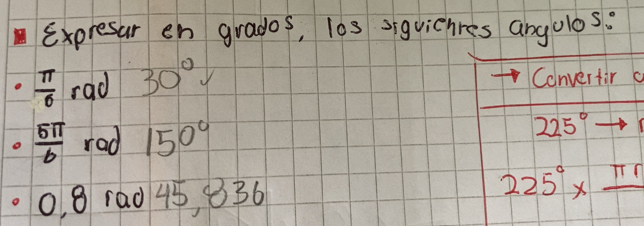 Expresar en grados, los siguientes angulos:
• π/6 rad 30° ✓
• 5π/6 rad 150°
• 0,8 rad 45,836
→ Convertir
225° →
225° x π